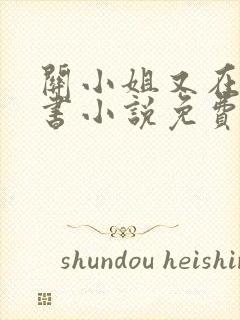 關小姐又在
書小說免費
shundou heishin